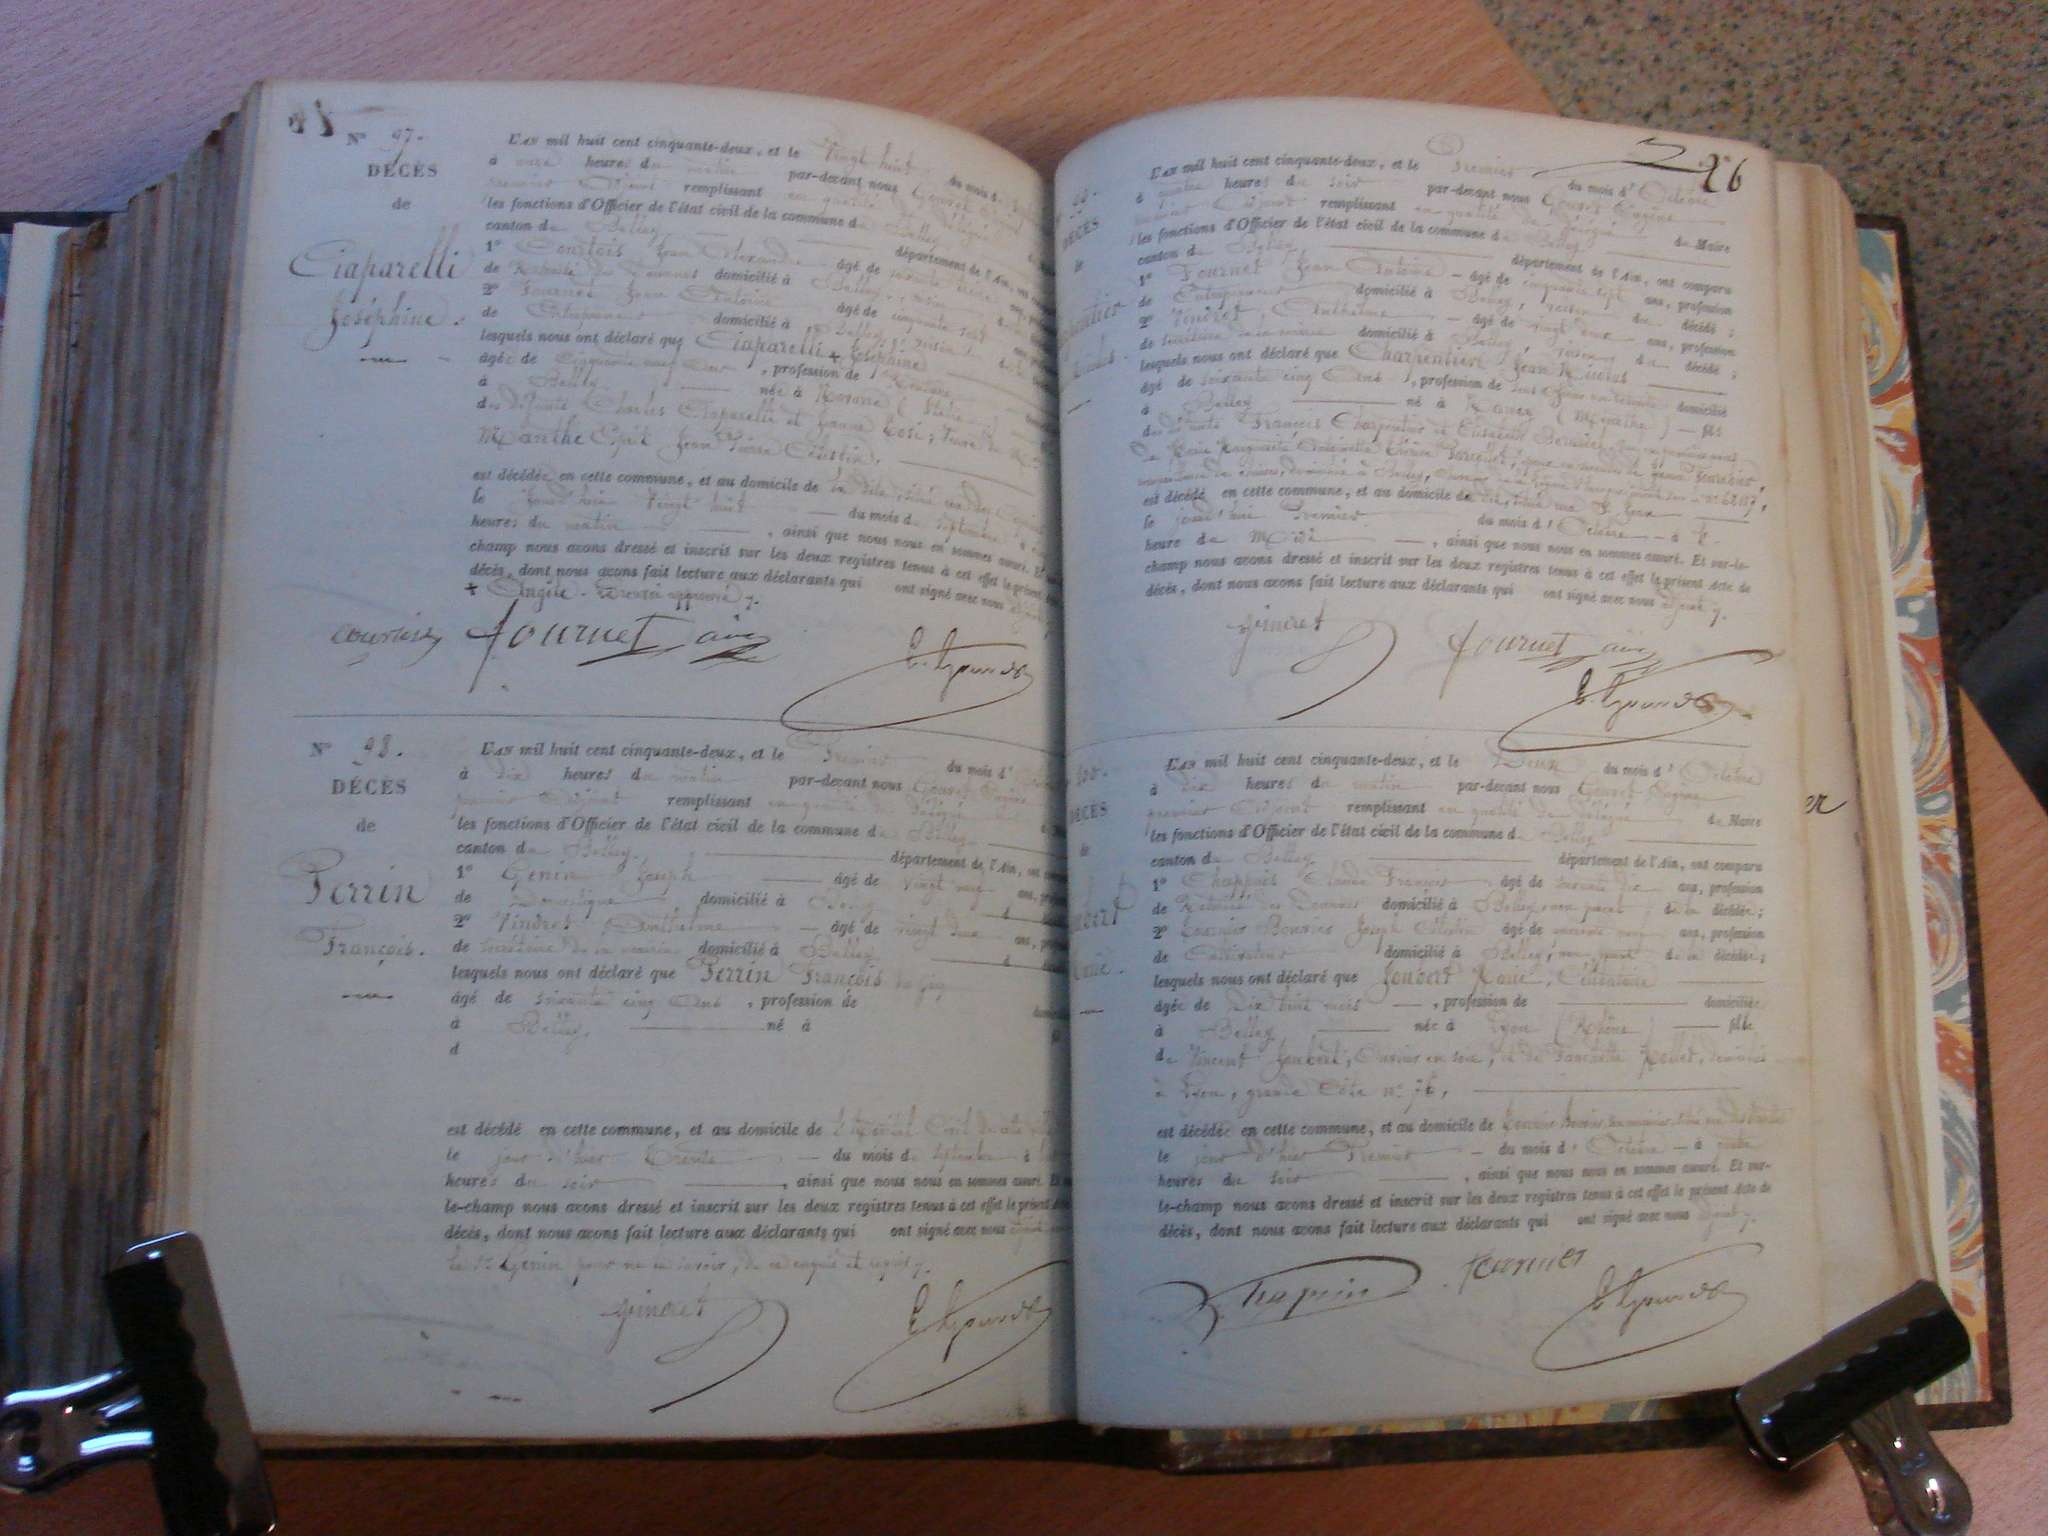 N° 97.
DÉCÈS
de
Ciaparelli
Joséphine.
L'AN mil huit cent cinquante-deux, et le Vingt huit du mois d
à onze heures du matin par-devant nous Gouret
premier Adjoint remplissant en qualité de Délégué
les fonctions d'Officier de l'état civil de la commune de Belley
canton de Belley, département de l'Ain, ont
1° Courtois Jean Alexandre âgé de soixante
de Retraité des Douanes domicilié à Belley, voisin
2° Fournet Jean Antoine âgé de cinquante sept
de Entrepreneur domicilié à Belley, voisin
lesquels nous ont déclaré que Ciaparelli + Joséphine
âgée de Cinquante neuf Ans, profession de domiciliée
à Belley née à
des défunts Charles Ciaparelli et Jeanne
Manthe Jean Pierre Célestin,
est décédée en cette commune, et au domicile de
le Jourd'hui Vingt huit du mois de Septembre à
heures du matin, ainsi que nous nous en sommes assuré. Et
champ nous avons dressé et inscrit sur les deux registres tenus à cet effet le présent
décès, dont nous avons fait lecture aux déclarants qui ont signé avec nous
+ Angèle. Renvoi approuvé
Courtois Fournet aîné
N° 98.
DÉCÈS
de
Perrin
François.
L'AN mil huit cent cinquante-deux, et le Premier du mois d'
à dix heures du matin par-devant nous Gouret Eugène
premier Adjoint remplissant en qualité de Délégué
les fonctions d'Officier de l'état civil de la commune de Belley
canton de Belley, département de l'Ain, ont
1° Genin Joseph âgé de vingt neuf ans,
de Domestique domicilié à Belley
2° Vindret Anthelme âgé de vingt deux ans,
de Secrétaire de la mairie domicilié à Belley
lesquels nous ont déclaré que Perrin François
âgé de soixante cinq Ans, profession de
à Belley. né à
d
est décédé en cette commune, et au domicile de l'hôpital Civil de cette
le jour d'hier Trente du mois de Septembre à
heures du soir, ainsi que nous nous en sommes assuré. Et
le-champ nous avons dressé et inscrit sur les deux registres tenus à cet effet le présent
décès, dont nous avons fait lecture aux déclarants qui ont signé avec nous
le Sr Genin pour ne le savoir, de ce enquis et requis
Vindret
26
DÉCÈS
de
L'AN mil huit cent cinquante-deux, et le Premier du mois d'Octobre
à quatre heures du soir par-devant nous Gouret Eugène
premier Adjoint remplissant en qualité de Délégué du Maire
les fonctions d'Officier de l'état civil de la commune de Belley
canton de Belley, département de l'Ain, ont comparu
1° Fournet Jean Antoine âgé de cinquante sept ans, profession
de Entrepreneur domicilié à Belley, voisin du décédé;
2° Vindret, Anthelme âgé de vingt deux ans, profession
de secrétaire de la mairie domicilié à Belley, voisin du décédé;
lesquels nous ont déclaré que Charpentier Jean Nicolas
âgé de soixante cinq Ans, profession de domicilié
à Belley né à Nancy (Meurthe) fils
des défunts François Charpentier et
est décédé en cette commune, et au domicile de
le jourd'hui Premier du mois d'Octobre à
heure de Midi, ainsi que nous nous en sommes assuré. Et sur-le-
champ nous avons dressé et inscrit sur les deux registres tenus à cet effet le présent Acte de
décès, dont nous avons fait lecture aux déclarants qui ont signé avec nous adjoint
Vindret Fournet aîné
100.
DÉCÈS
de
L'AN mil huit cent cinquante-deux, et le Deux du mois d'Octobre
à dix heures du matin par-devant nous Gouret Eugène
premier Adjoint remplissant en qualité de Délégué du Maire
les fonctions d'Officier de l'état civil de la commune de Belley
canton de Belley département de l'Ain, ont comparu
1° Chappuis Claude François âgé de ans, profession
de Retraité des Douanes domicilié à Belley, non parent de la décédée;
2° Joseph âgé de ans, profession
de Cultivateur domicilié à Belley, non parent de la décédée;
lesquels nous ont déclaré que Joubert Marie, Célibataire
âgée de dix huit mois, profession de domiciliée
à Belley née à Lyon (Rhône) fille
de Vincent Joubert, Ouvrier en soie, et de
à Lyon, grande Côte n° 76,
est décédée en cette commune, et au domicile de
le jour d'hier Premier du mois d'Octobre à quatre
heures du soir, ainsi que nous nous en sommes assuré. Et sur-
le-champ nous avons dressé et inscrit sur les deux registres tenus à cet effet le présent Acte de
décès, dont nous avons fait lecture aux déclarants qui ont signé avec nous adjoint
er